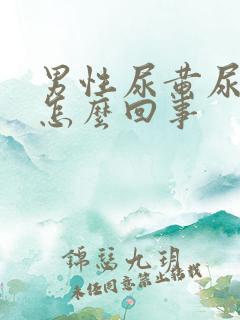 男性尿黄尿
怎麼回事
錦瑟九玥
未经同意禁止搭载